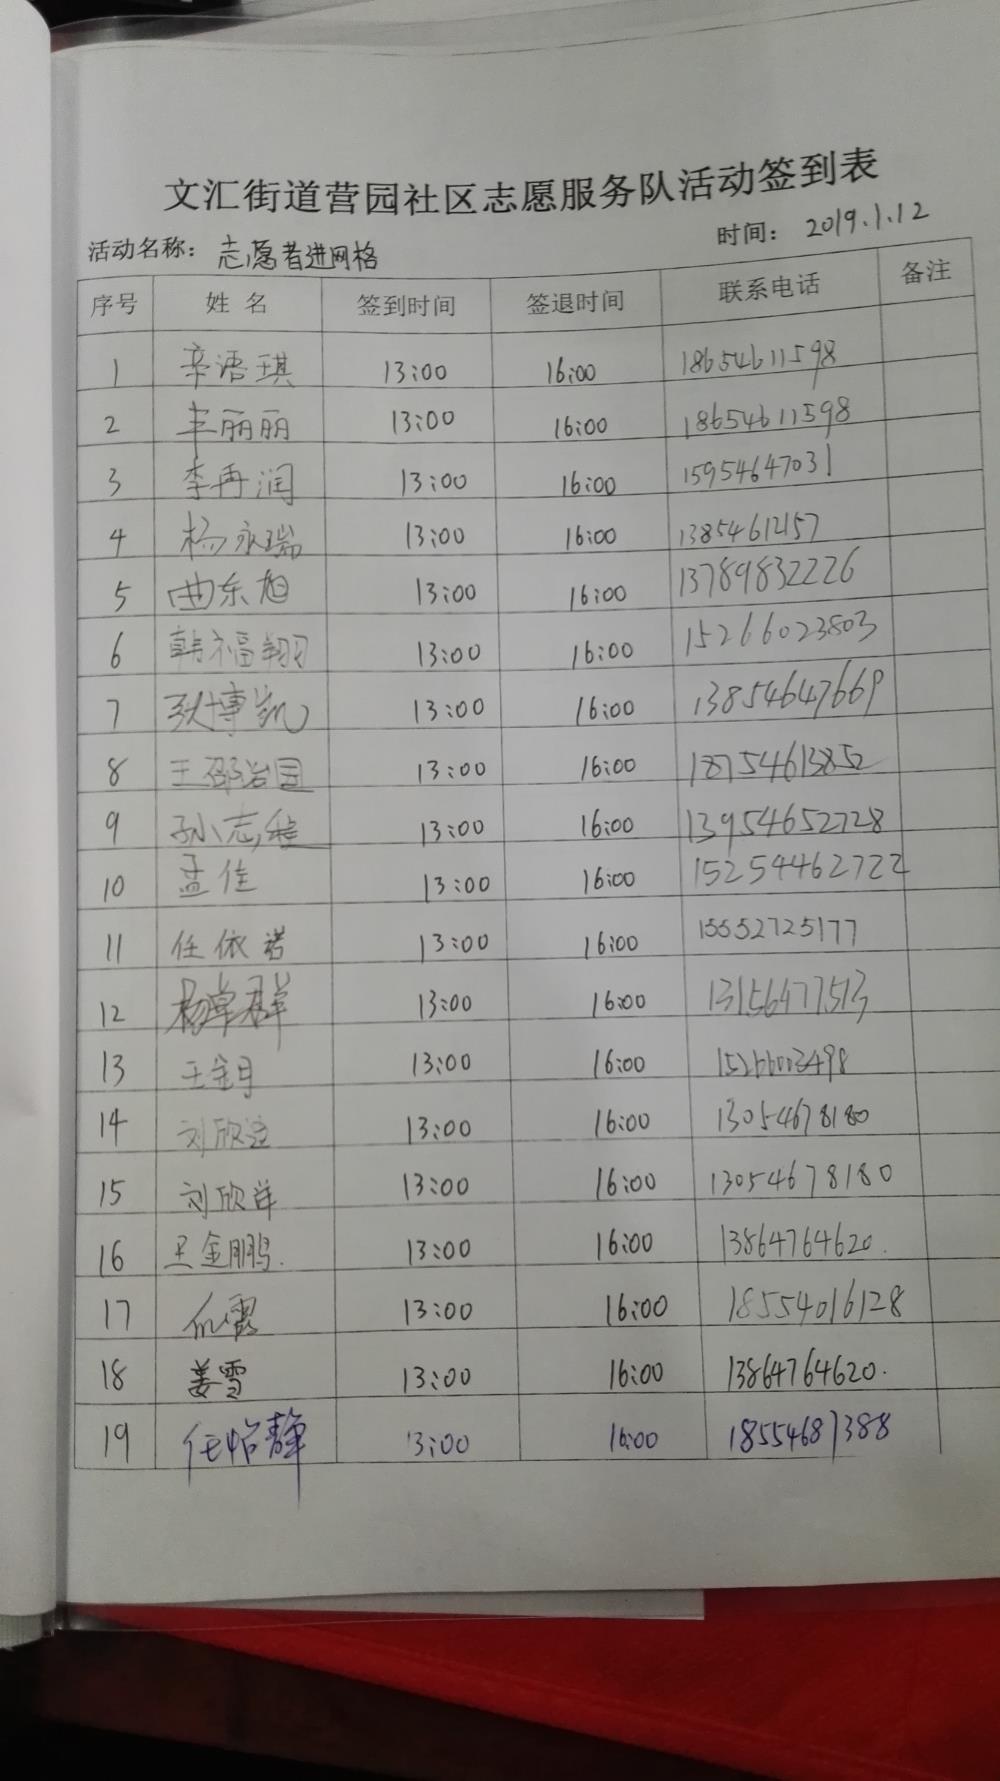 文汇街道营园社区志愿服务队活动签到表
活动名称： 志愿者进网格 时间： 2019.1.12
序号 姓名 签到时间 签退时间 联系电话 备注
1 辛语琪 13:00 16:00 18654611598
2 丰丽丽 13:00 16:00 18654611598
3 李再润 13:00 16:00 15954647031
4 杨永瑞 13:00 16:00 13854612157
5 曲东旭 13:00 16:00 13789832226
6 韩福翔 13:00 16:00 15266023803
7 狄博凯 13:00 16:00 13854647669
8 王邵治国 13:00 16:00 18754613852
9 孙志程 13:00 16:00 13954652728
10 孟佳 13:00 16:00 15254462722
11 任依诺 13:00 16:00 15552725177
12 13:00 16:00 13156477513
13 王金月 13:00 16:00
14 刘欣 13:00 16:00 13054678180
15 刘欣 13:00 16:00 13054678180
16 王金鹏. 13:00 16:00 13864764620.
17 13:00 16:00 18554016128
18 姜雪 13:00 16:00 13864764620.
19 任怡静 13:00 16:00 18554687388